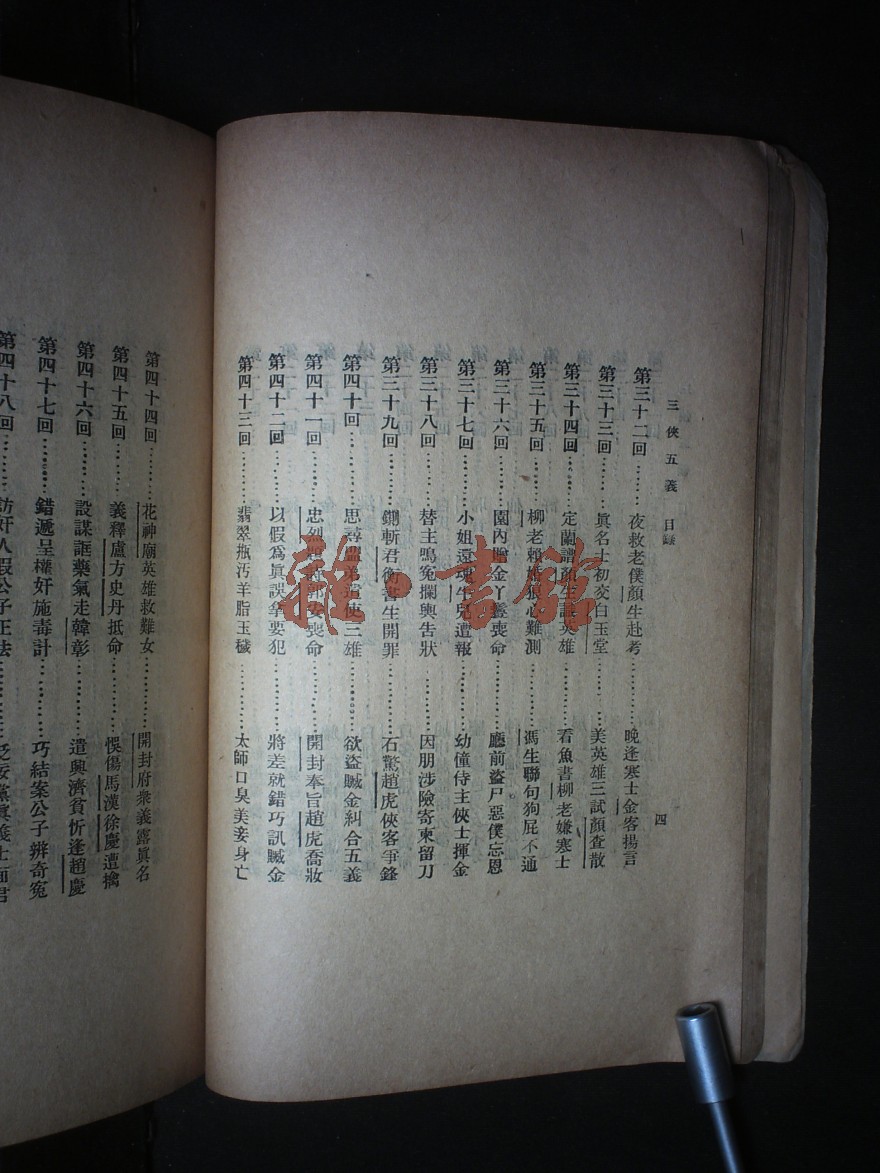 三俠五義 目錄
四
第三十二回………夜救老僕顏生赴考…………晚逢寒士金客揚言
第三十三回………眞名士初交白玉堂…………美英雄三試顏查散
第三十四回………定蘭譜顏生識英雄…………看魚書柳老嫌寒士
第三十五回………柳老賴婚狼心難測…………馮生聯句狗屁不通
第三十六回………園內贈金丫鬟喪命…………廳前盜尸惡僕忘恩
第三十七回………小姐還魂牛兒遭報…………幼僮侍主俠士揮金
第三十八回………替主鳴寃攔輿告狀…………因朋涉險寄柬留刀
第三十九回………鍘斬君衡書生開罪…………石驚趙虎俠客爭鋒
第四十回………思尋盟弟遣使三雄…………欲盜贓金糾合五義
第四十一回………忠烈題詩郭安喪命…………開封奉旨趙虎喬妝
第四十二回………以假爲眞誤拿要犯…………將差就錯巧訊贓金
第四十三回………翡翠瓶汚羊脂玉穢…………太師口臭美妾身亡
第四十四回………花神廟英雄救難女…………開封府衆義露眞名
第四十五回………義釋盧方史丹抵命…………悞傷馬漢徐慶遭擒
第四十六回………設謀誆藥氣走韓彰…………遣興濟貧忻逢趙慶
第四十七回………錯遞呈權奸施毒計…………巧結案公子辨奇寃
第四十八回………訪奸人假公子正法…………貶佞黨眞義士面君
雜·書館